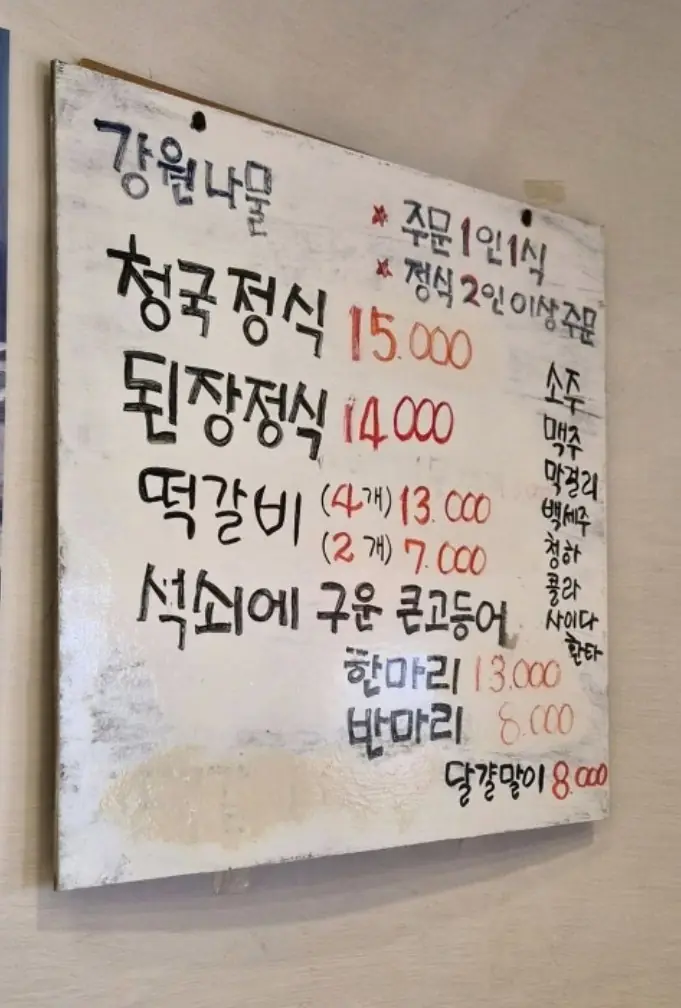 강원나물
* 주문 1인1식
* 정식 2인이상주문
청국정식 15.000
된장정식 14.000
떡갈비 (4개) 13.000
(2개) 7.000
석쇠에 구운 큰고등어
한마리 13.000
반마리 8.000
달걀말이 8.000
소주
맥주
막걸리
백세주
청하
콜라
사이다
환타